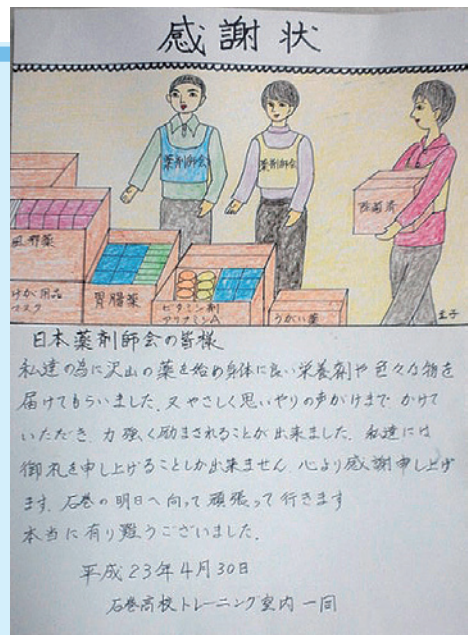 感謝状
薬剤師会
薬剤師会
除菌済
風邪薬
胃腸薬
けが用品
マスク
ビタミン剤
アリナミンA
うがい薬
圭子
日本薬剤師会の皆様
私達の為に沢山の薬を始め身体に良い栄養剤や色々な物を
届けてもらいました。又やさしく思いやりの声がけまで かけて
いただき、力強く励まされることが出来ました。私達には
御礼を申し上げることしか出来ません 心より感謝申し上げ
ます。石巻の明日へ向って頑張って行きます
本当に有り難うございました。
平成23年4月30日
石巻高校トレーニング室内一同